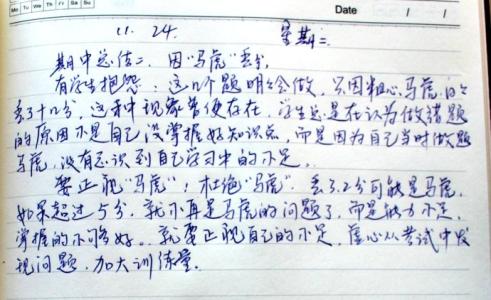 Mo Tu We Th Fr Sa Su
Date / /
11. 24. 星期二.
期中总结二. 因"马虎"丢分.
有学生抱怨: 这几个题明明会做, 只因粗心马虎,
丢了十几分, 这种现象普便存在, 学生总是在认为做错题
的原因不是自己没掌握好知识点, 而是因为自己当时做题
马虎, 没有意识到自己学习中的不足.
要正视"马虎", 杜绝"马虎". 丢了2分可能是马虎.
如果超过5分, 就不再是马虎的问题了, 而是能力不足,
掌握的不够好. 就要正视自己的不足, 虚心从考试中发
现问题, 加大训练量.